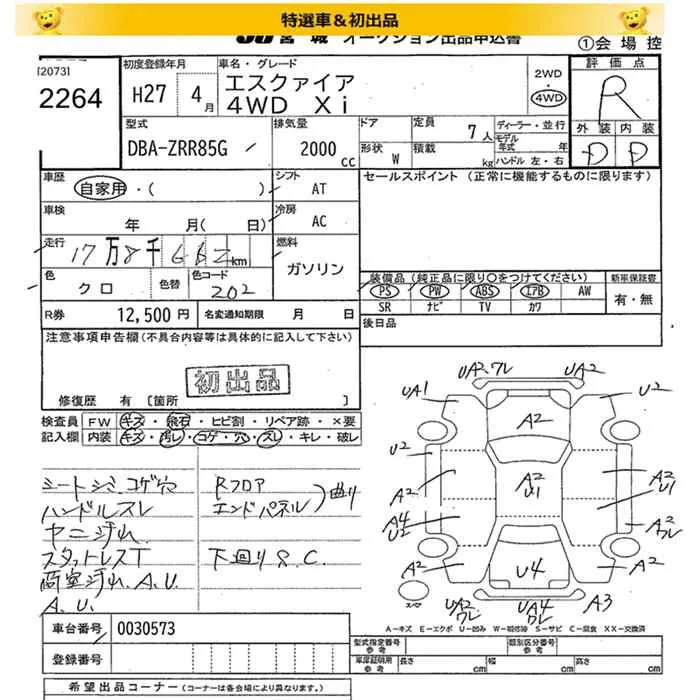 特選車＆初出品
JU宮城 オークション出品申込書
①会場控
[2073]
2264
初度登録年月
H27 4月
車名・グレード
エスクァイア
4WD Xi
2WD
・
4WD
評価点
R
外装 内装
D D
型式
DBA-ZRR85G
排気量
2000 cc
ドア
形状 W
定員 7人
積載 kg
ディーラー・並行
モデル
年式 年
ハンドル 左・右
車歴
自家用・( )
シフト AT
セールスポイント (正常に機能するものに限ります)
車検 年 月( 日)
冷房 AC
走行
17万8千662km
燃料
ガソリン
色
クロ
色替
色コード
202
装備品 (純正品に限り○をつけてください)
PS PW ABS エアB AW
SR ナビ TV カワ
新車保証書
有・無
R券 12,500円
名変通知期限 月 日
後日品
注意事項申告欄(不具合内容等は具体的に記入して下さい)
初出品
修復歴 有〔箇所 〕
検査員
記入欄
FW キズ・飛石・ヒビ割・リペア跡・×要
内装 キズ・汚レ・コゲ・穴・スレ・キレ・破レ
シートシミ、コゲ穴
ハンドルスレ
ヤニ汚れ
スタットレスT
荷室汚れ、A、U
A、U
Rフロア
エンドパネル 曲り
下回りS、C
UA2、ワレ UA2
UA1 U2
A2
U2 A2
A2
U1
A2
U1
A4
U2
A2
ワレ
A2 U4 A2
スペア
UA2
ワレ
UA4
ワレ
A3
A−キズ E−エクボ U−凹み W−補修跡 S−サビ C−腐食 XX−交換済
車台番号 0030573
登録番号
型式指定番号
参考
類別区分番号
参考
車庫証明用
参考
長さ cm 幅 cm 高さ cm
希望出品コーナー (コーナーは各会場により異なります。)